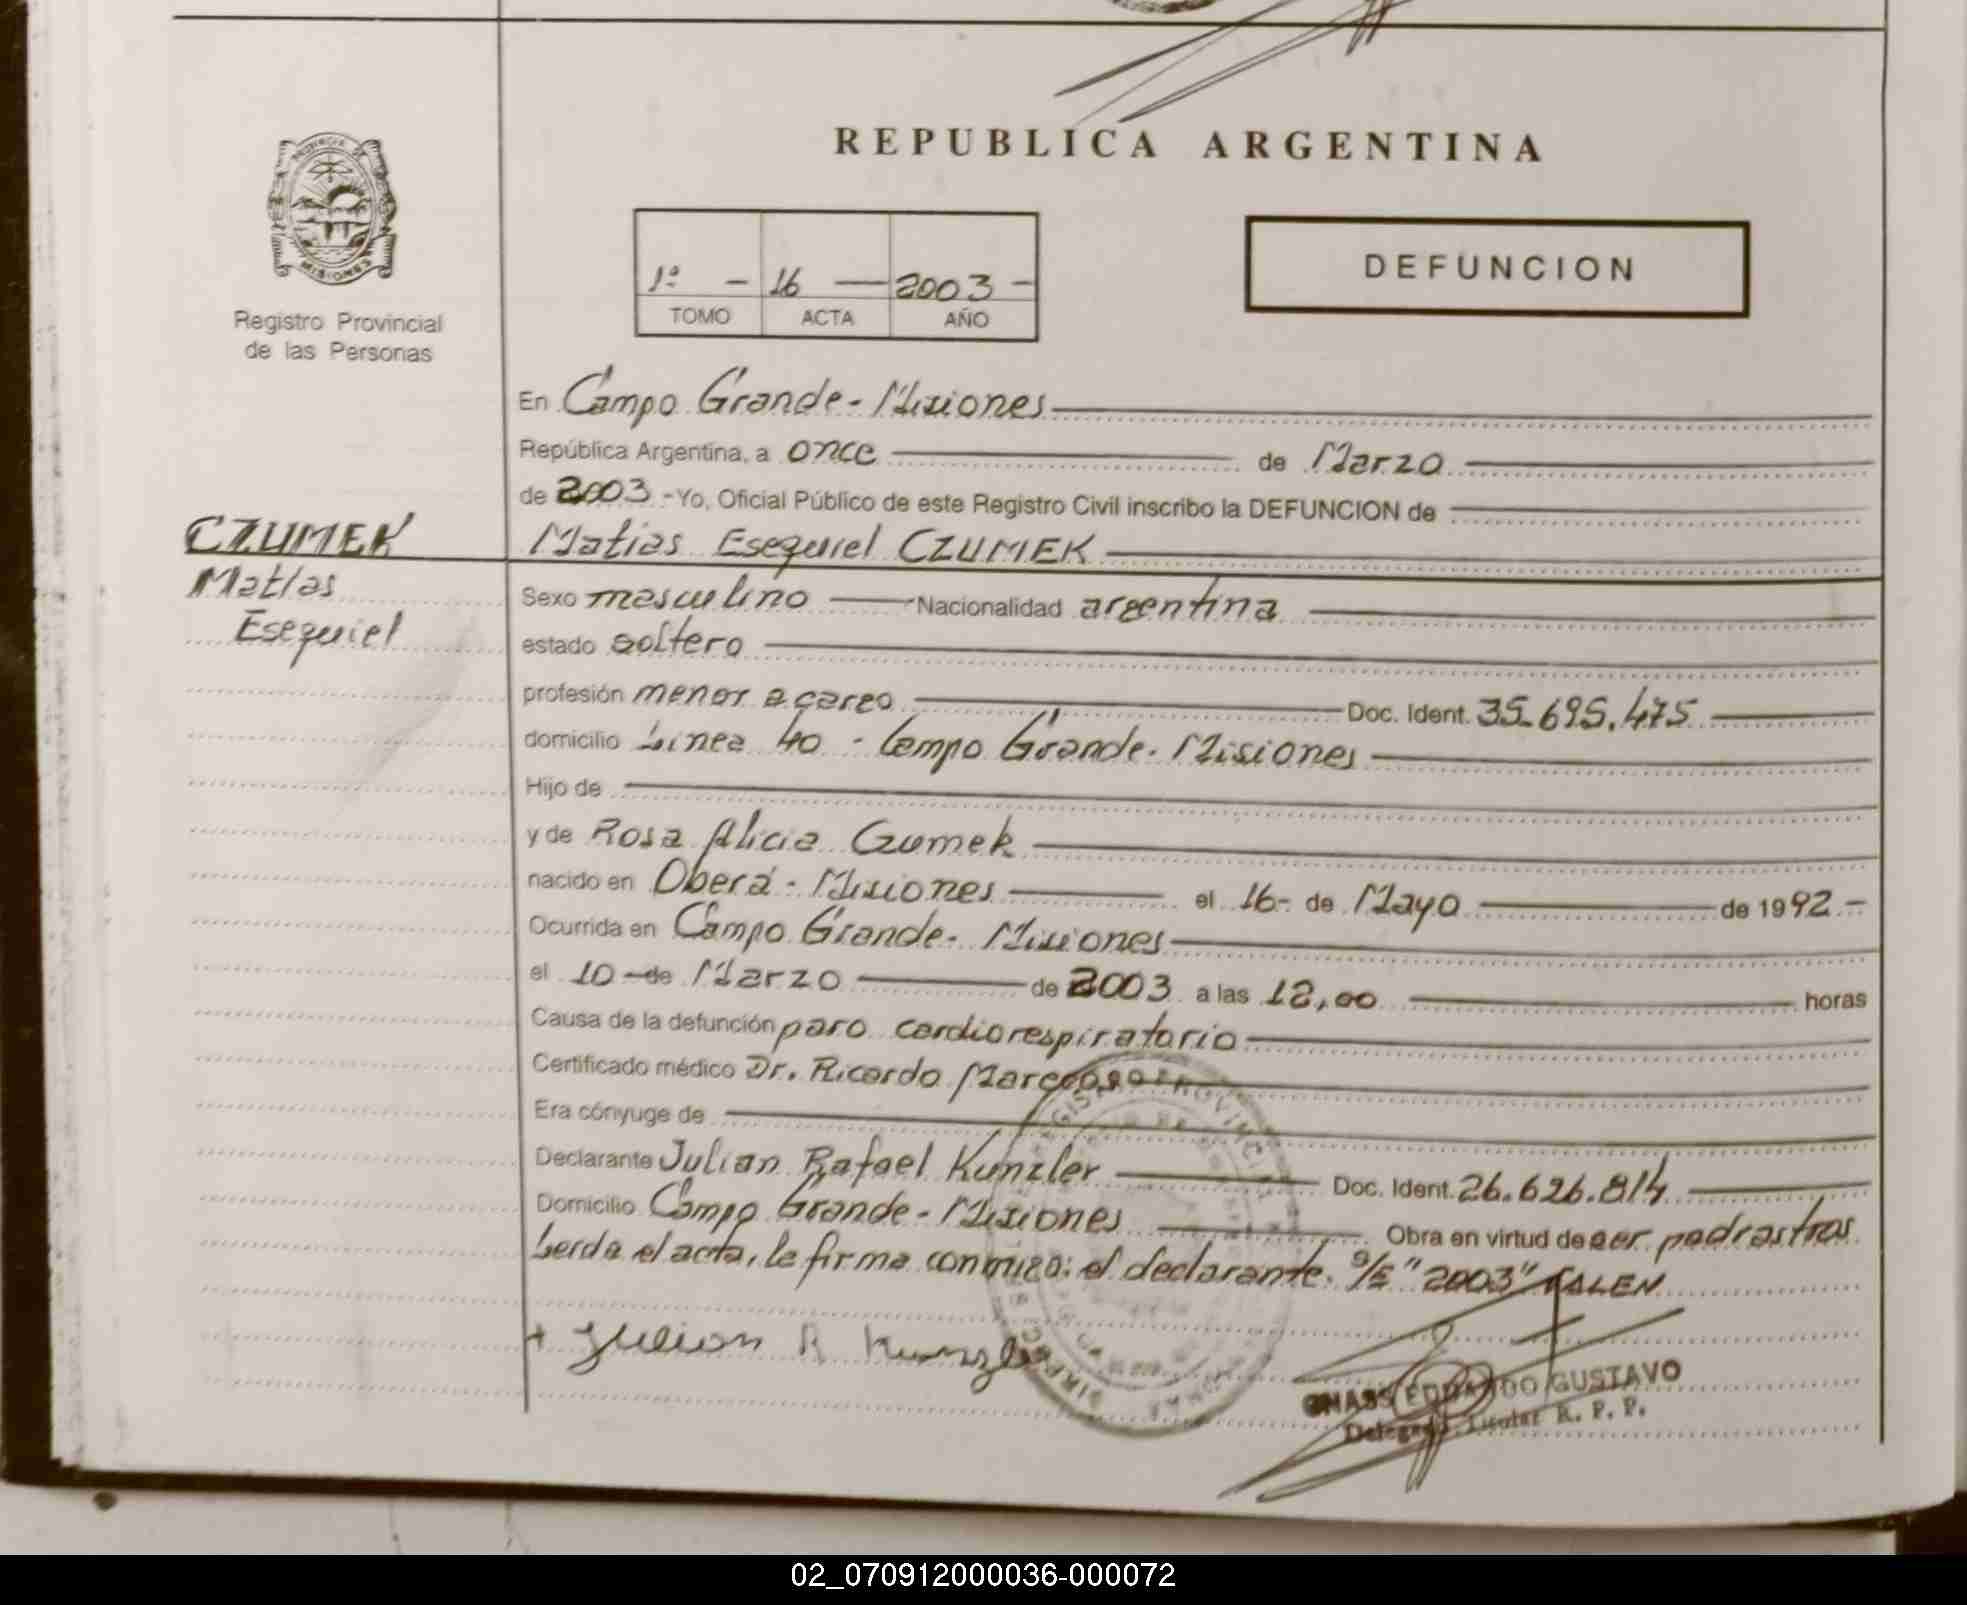 REPUBLICA ARGENTINA
PROVINCIA DE
MISIONES
Registro Provincial
de las Personas
1º - 16 — 2003 -
TOMO ACTA AÑO
DEFUNCION
En Campo Grande - Misiones
República Argentina, a once de Marzo
de 2003 - Yo, Oficial Público de este Registro Civil inscribo la DEFUNCION de
CZUMEK
Matias
Esequiel
Matias Esequiel CZUMEK
Sexo masculino Nacionalidad argentina
estado soltero
profesión menor a cargo Doc. Ident. 35.695.475
domicilio Linea 40 - Campo Grande - Misiones
Hijo de
y de Rosa Alicia Czumek
nacido en Oberá - Misiones el 16 - de Mayo de 1992 -
Ocurrida en Campo Grande - Misiones
el 10 - de Marzo de 2003 a las 12,00 horas
Causa de la defunción paro cardiorespiratorio
Certificado médico Dr. Ricardo
Era cónyuge de
Declarante Julian Rafael Kunzler Doc. Ident. 26.626.814
Domicilio Campo Grande - Misiones Obra en virtud de ser padrastro
Leida el acta, la firma conmigo: el declarante. S/E "2003" VALEN
+ Julian R Kunzler
GNASS EDUARDO GUSTAVO
Delegado Titular R. P. P.
02_070912000036-000072